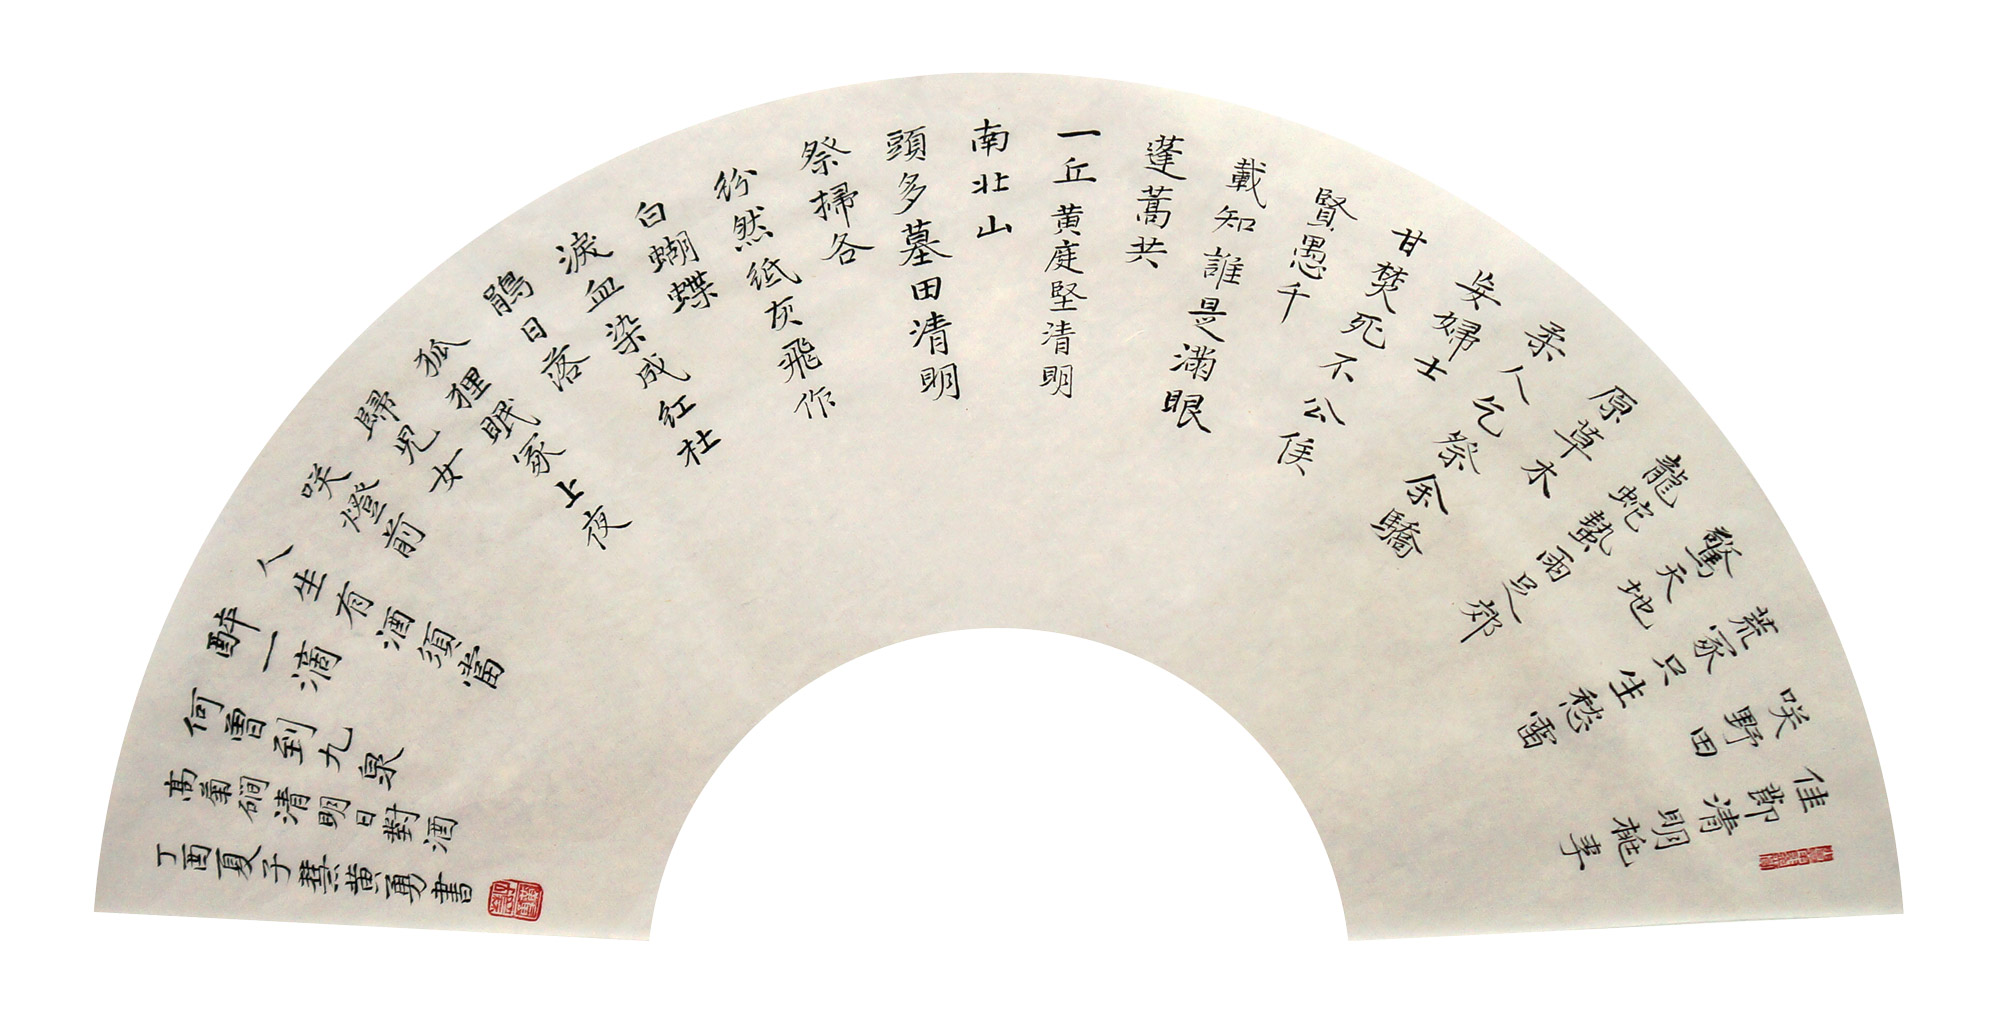 佳節清明桃李
咲野田
荒冢只生愁雷
驚天地
龍蛇蟄雨足郊
原草木
柔人乞祭余驕
妾婦士
甘焚死不公侯
賢愚千
載知誰是滿眼
蓬蒿共
一丘黄庭堅清明
南北山
頭多墓田清明
祭掃各
紛然紙灰飛作
白蝴蝶
淚血染成紅杜
鵑日落
狐狸眠冢上夜
歸兒女
咲燈前
人生有酒須當
醉一滴
何曾到九泉
高菊磵清明日對酒
丁酉夏子慧黄勇書